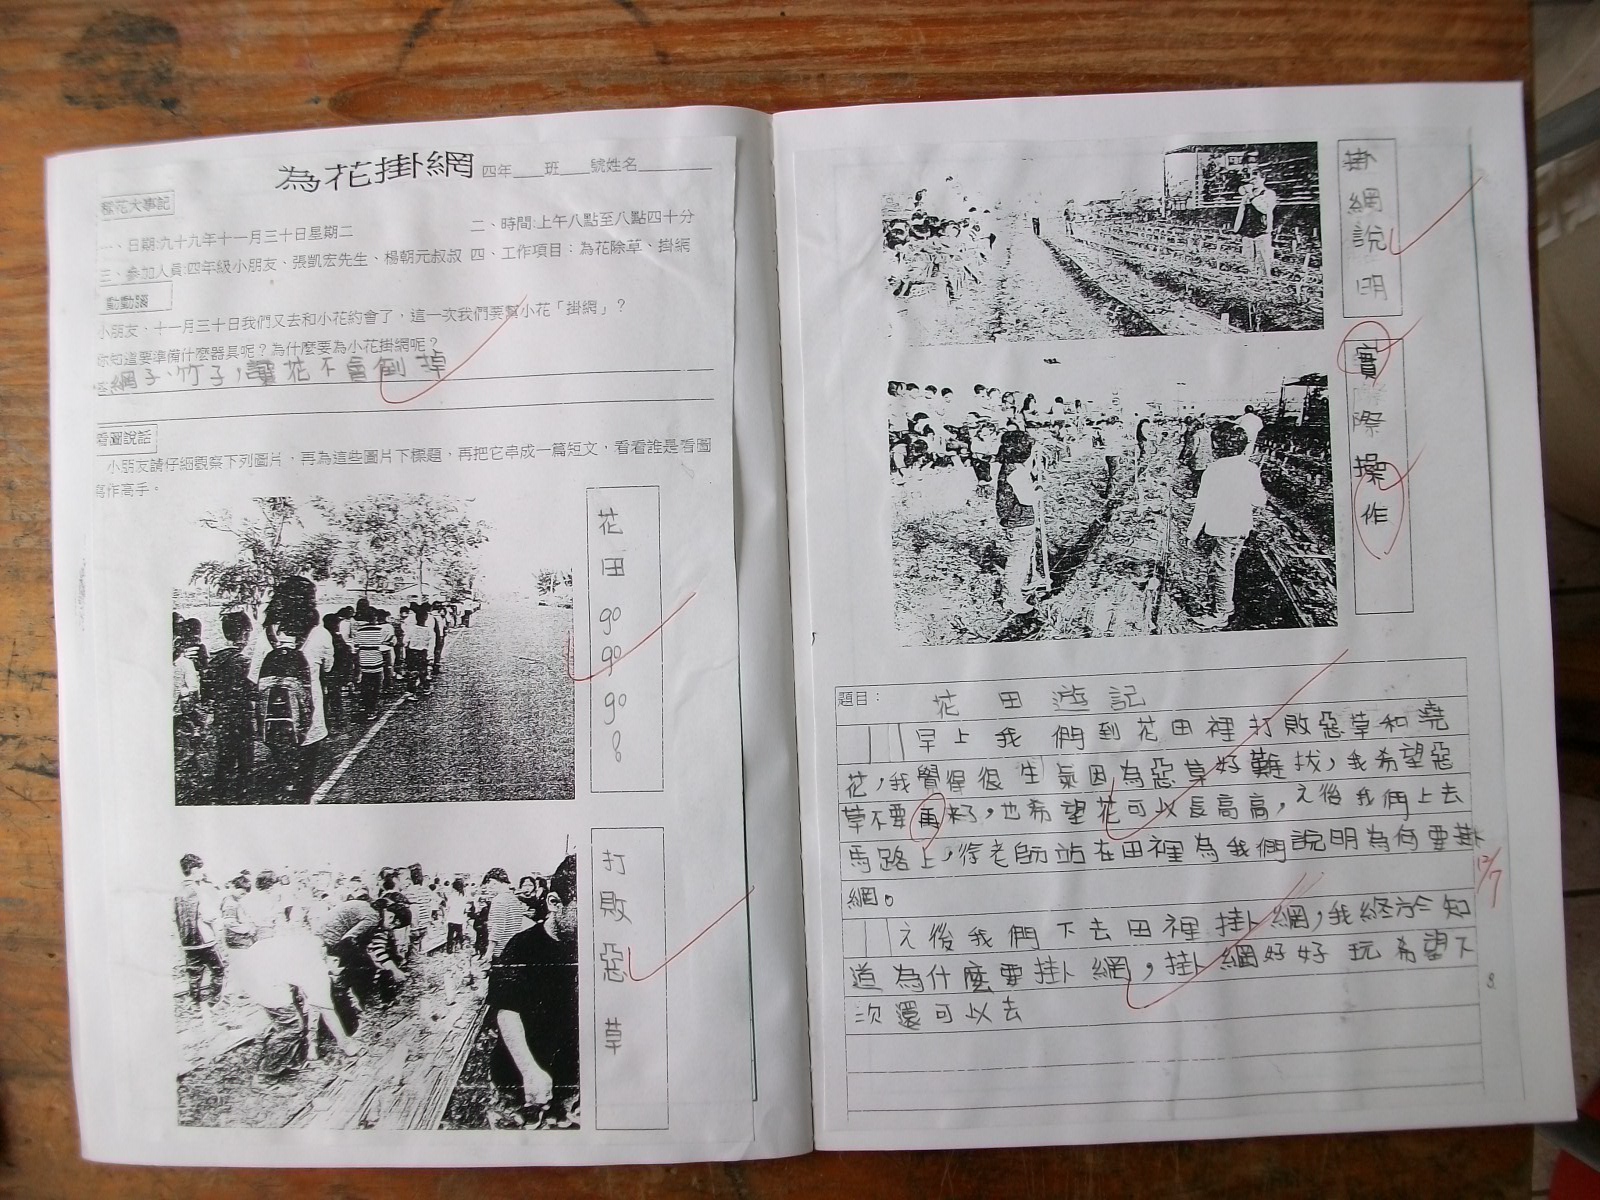 為花掛網 四年___班___號姓名________
種花大事記
一、日期:九十九年十一月三十日星期二
二、時間:上午八點至八點四十分
三、參加人員:四年級小朋友、張凱宏先生、楊朝元叔叔
四、工作項目：為花除草、掛網
動動腦
小朋友、十一月三十日我們又去和小花約會了，這一次我們要幫小花「掛網」？
你知道要準備什麼器具呢？為什麼要為小花掛網呢？
網子、竹子，讓花不會倒掉
看圖說話
小朋友請仔細觀察下列圖片，再為這些圖片下標題，再把它串成一篇短文，看看誰是看圖
寫作高手。
花田gogogo
打敗惡草
掛網說明
實際操作
題目：花田遊記
早上我們到花田裡打敗惡草和澆
花，我覺得很生氣因為惡草好難找，我希望惡
草不要再來了，也希望花可以長高高，之後我們上去
馬路上，徐老師站在田裡為我們說明為何要掛
網。
之後我們下去田裡掛網，我終於知
道為什麼要掛網，掛網好好玩希望下
次還可以去
12/7